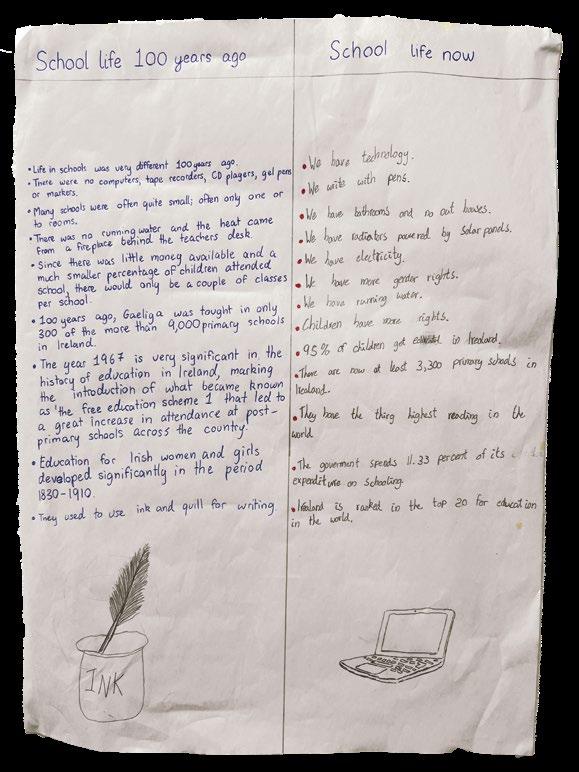 School life 100 years ago
• Life in schools was very different 100 years ago.
• There were no computers, tape recorders, CD players, gel pens
or markers.
• Many schools were often quite small; often only one or
to rooms.
• There was no running water and the heat came
from a fireplace behind the teachers desk.
• Since there was little money available and a
much smaller percentage of children attended
school, there would only be a couple of classes
per school.
• 100 years ago, Gaeliga was taught in only
300 of the more than 9,000 primary schools
in Ireland.
• The year 1967 is very significant in the
history of education in Ireland, marking
the introduction of what became known
as 'the free education scheme 1 that led to
a great increase in attendance at post-
primary schools across the country.
• Education for Irish women and girls
developed significantly in the period
1830-1910.
• They used to use ink and quill for writing.
INK
School life now
• We have technology.
• We write with pens.
• We have bathrooms and no out houses.
• We have radiators powered by solar ponds.
• We have electricity.
• We have more gender rights.
• We have running water.
• Children have more rights.
• 95% of children get in Irealand.
• There are now at least 3,300 primary schools in
Irealand.
• They have the thing highest reading in the
world
• The goverment spends 11.33 percent of its
expenditure on schooling.
• Irealand is ranked in the top 20 for education
in the world.